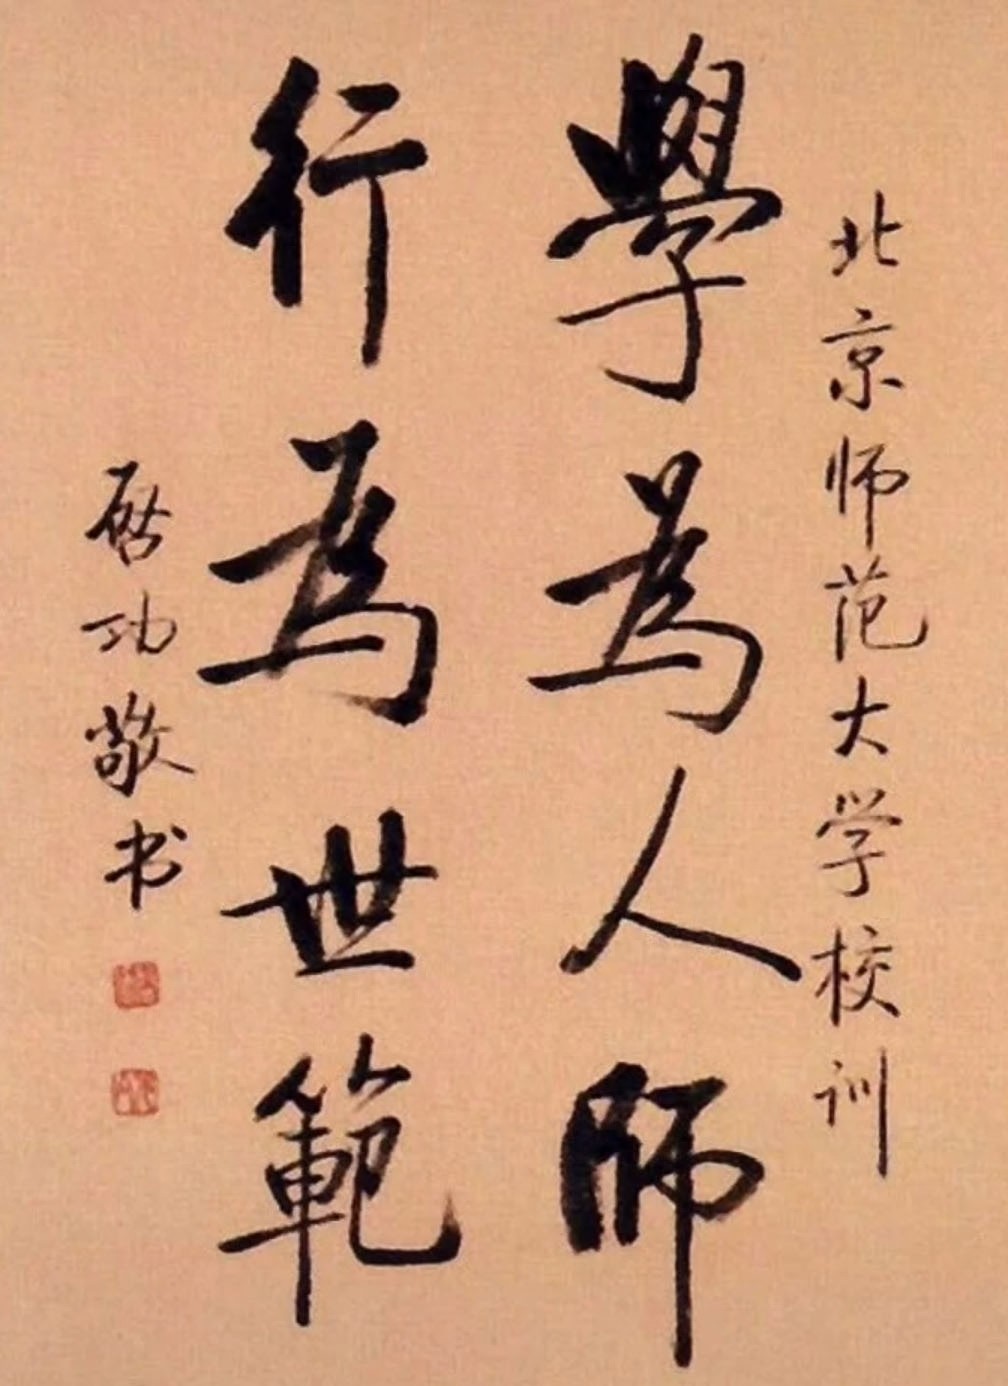 北京师范大学校训
學為人师
行為世範
启功敬书